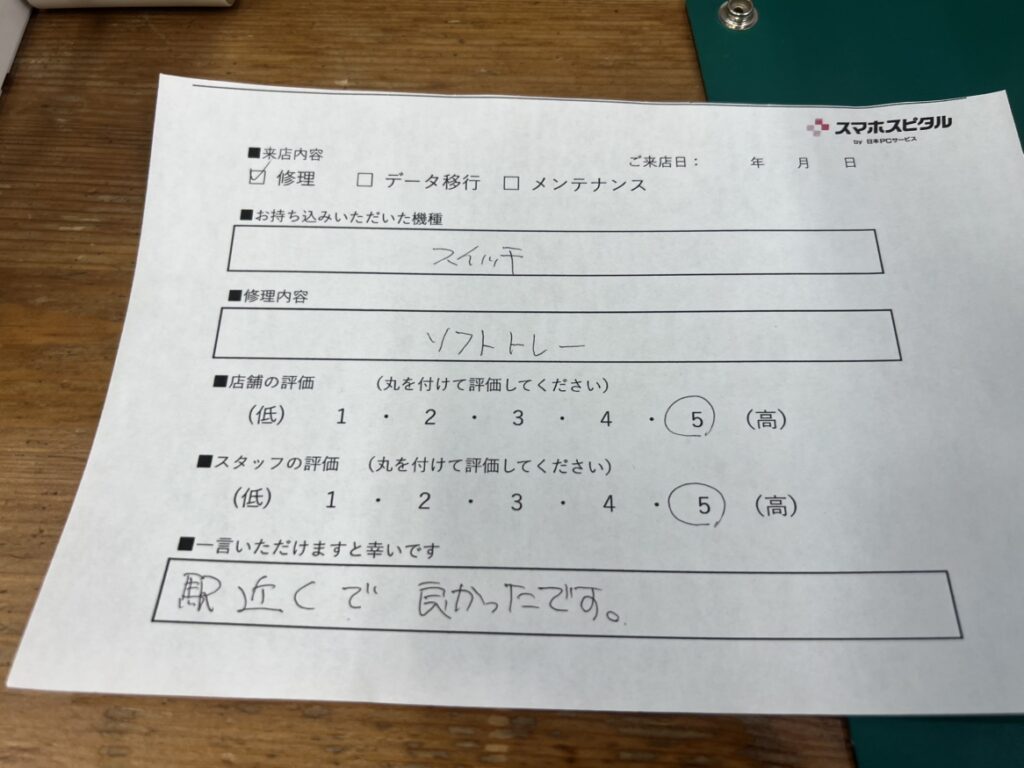 スマホスピタル
by 日本PCサービス
■来店内容
ご来店日： 年 月 日
☑ 修理 □ データ移行 □ メンテナンス
■お持ち込みいただいた機種
スイッチ
■修理内容
ソフトトレー
■店舗の評価 （丸を付けて評価してください）
（低） 1 ・ 2 ・ 3 ・ 4 ・ 5 （高）
■スタッフの評価 （丸を付けて評価してください）
（低） 1 ・ 2 ・ 3 ・ 4 ・ 5 （高）
■一言いただけますと幸いです
駅近くで 良かったです。